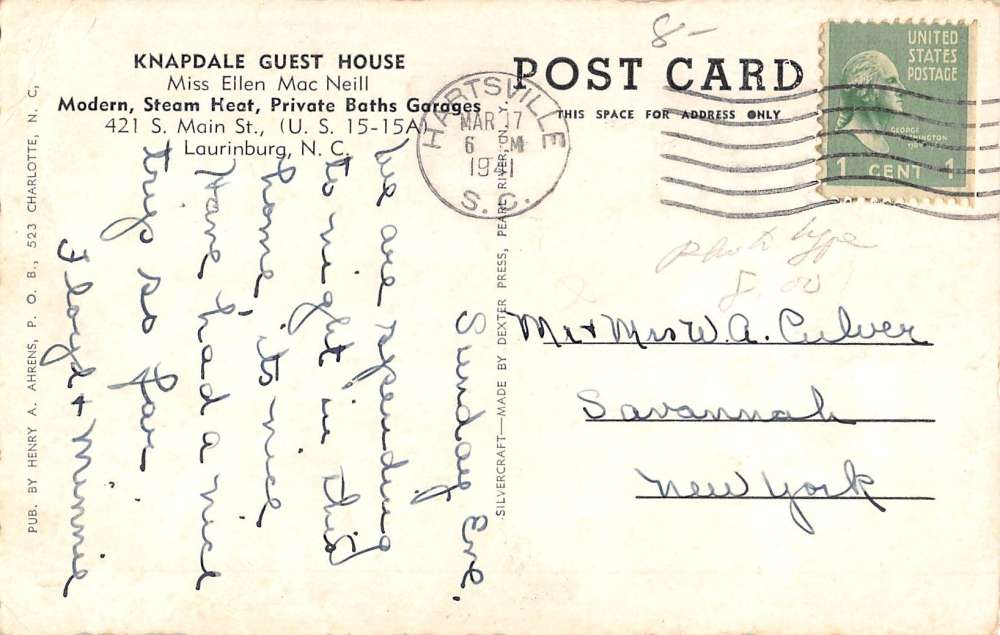 KNAPDALE GUEST HOUSE
Miss Ellen Mac Neill
Modern, Steam Heat, Private Baths Garages
421 S. Main St., (U. S. 15-15A)
Laurinburg, N. C.
POST CARD
THIS SPACE FOR ADDRESS ONLY
8-
HARTSVILLE
MAR 17
6 M
1941
S. C.
UNITED
STATES
POSTAGE
GEORGE
WASHINGTON
1 CENT 1
Phototype
8.00
Sunday Eve.
We are spending
to night in this
home, its nice
Have had a nice
trip so far
Floyd + Minnie
Mr + Mrs W. A. Culver
Savannah
New York
PUB. BY HENRY A. AHRENS, P. O. B., 523 CHARLOTTE, N. C,
SILVERCRAFT—MADE BY DEXTER PRESS, PEARL RIVER, N. Y.